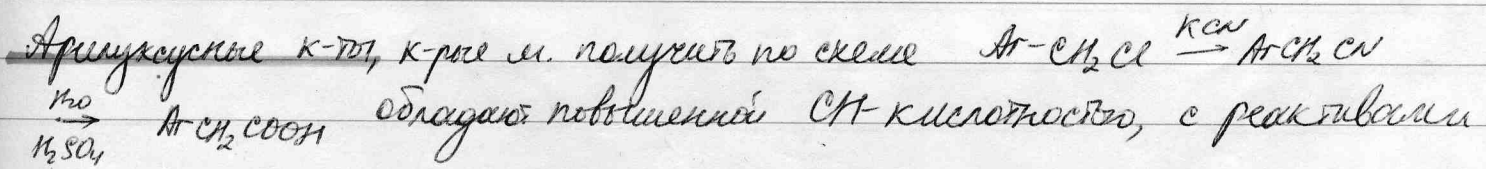 Арилуксусные к-ты, к-рые м. получить по схеме Ar-CH₂Cl KCN → ArCH₂CN
H₂O → H₂SO₄ ArCH₂COOH обладают повышенной СН-кислотностью, с реактивами